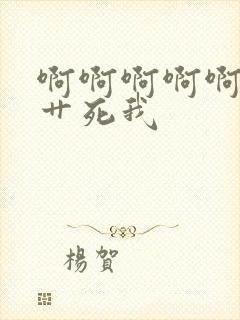 啊啊啊啊啊
艹死我
楊賀